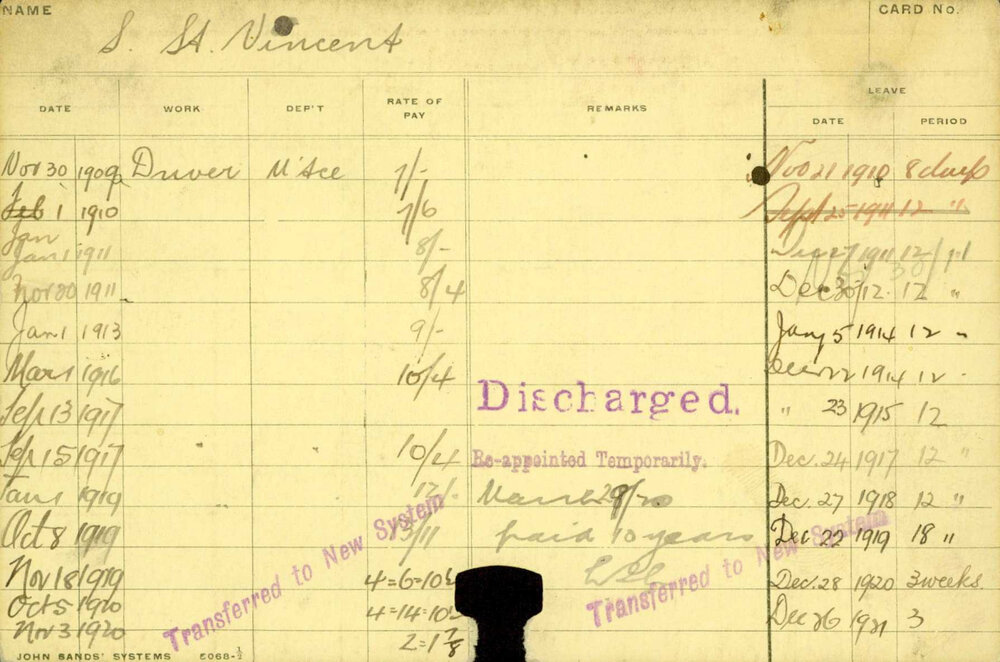 NAME
S. St. Vincent
CARD No.
DATE WORK DEP'T RATE OF PAY REMARKS LEAVE DATE PERIOD
Nov 30 1909 Driver M'tce 7/- Nov 21 1910 8 days
Feb 1 1910 7/6 Sept 25 1911 12 "
Jan
Jan 1 1911 8/- Dec 27 1911 12
Nov 30 1911 8/4 Dec 30/12 12 "
Jan 1 1913 9/- Jany 5 1914 12 "
Mar 1 1916 10/4 Dec 22 1914 12 "
Sep 13 1917 Discharged. " 23 1915 12
Sep 15 1917 10/4 Re-appointed Temporarily. Dec. 24 1917 12 "
Jan 1 1919 12/- March 29/20 Dec. 27 1918 12 "
Oct 8 1919 13/11 paid 10 years Dec 22 1919 18 "
Nov 18 1919 4=6=10½ Dec. 28 1920 3 weeks
Oct 5 1920 4=14=10½ Dec 26 1921 3
Nov 3 1920 2=1 7/8
Transferred to New System
Transferred to New System
JOHN SANDS' SYSTEMS 5068-½